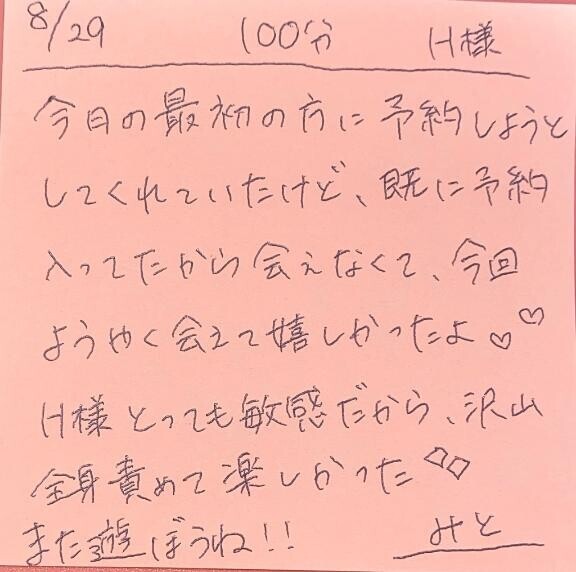 8/29 100分 H様
今日の最初の方に予約しようと
してくれていたけど、既に予約
入ってたから会えなくて、今回
ようやく会えて嬉しかったよ♡♡
H様とっても敏感だから、沢山
全身責めて楽しかった◇◇
また遊ぼうね!! みと